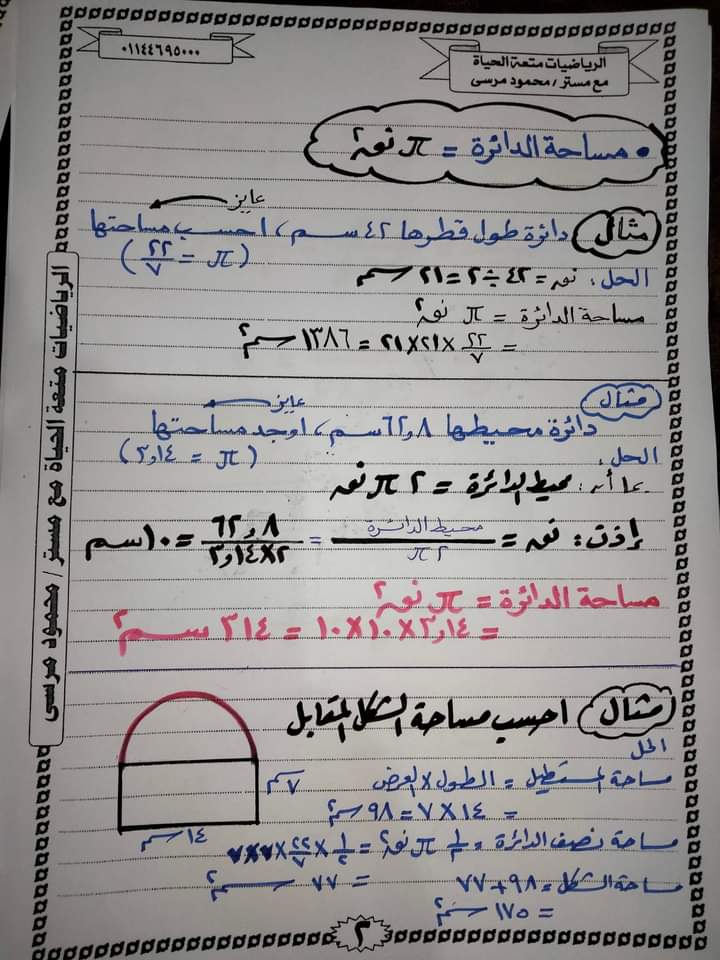 الرياضيات متعة الحياة
مع مستر / محمود مرسى
٠١١٤٤٦٩٥٠٠٠
• مساحة الدائرة = π نق²
عايز
مثال دائرة طول قطرها ٤٢ سم ، احسب مساحتها
(π = ٢٢/٧)
الحل : نق = ٤٢ ÷ ٢ = ٢١ سم
مساحة الدائرة = π نق²
= ٢٢/٧ × ٢١ × ٢١ = ١٣٨٦ سم²
عايز
مثال
دائرة محيطها ٦٢,٨ سم ، اوجد مساحتها
(π = ٣,١٤)
الحل :
بما أن : محيط الدائرة = ٢ π نق
إذن : نق = محيط الدائرة / ٢ π = ٦٢,٨ / ٣,١٤ × ٢ = ١٠ سم
مساحة الدائرة = π نق²
= ٣,١٤ × ١٠ × ١٠ = ٣١٤ سم²
مثال احسب مساحة الشكل المقابل
الحل
مساحة المستطيل = الطول × العرض
= ١٤ × ٧ = ٩٨ سم²
مساحة نصف الدائرة = ١/٢ π نق² = ١/٢ × ٢٢/٧ × ٧ × ٧
= ٧٧ سم²
مساحة الشكل = ٩٨ + ٧٧
= ١٧٥ سم²
٧ سم
١٤ سم
٢
الرياضيات متعة الحياة مع مستر / محمود مرسى